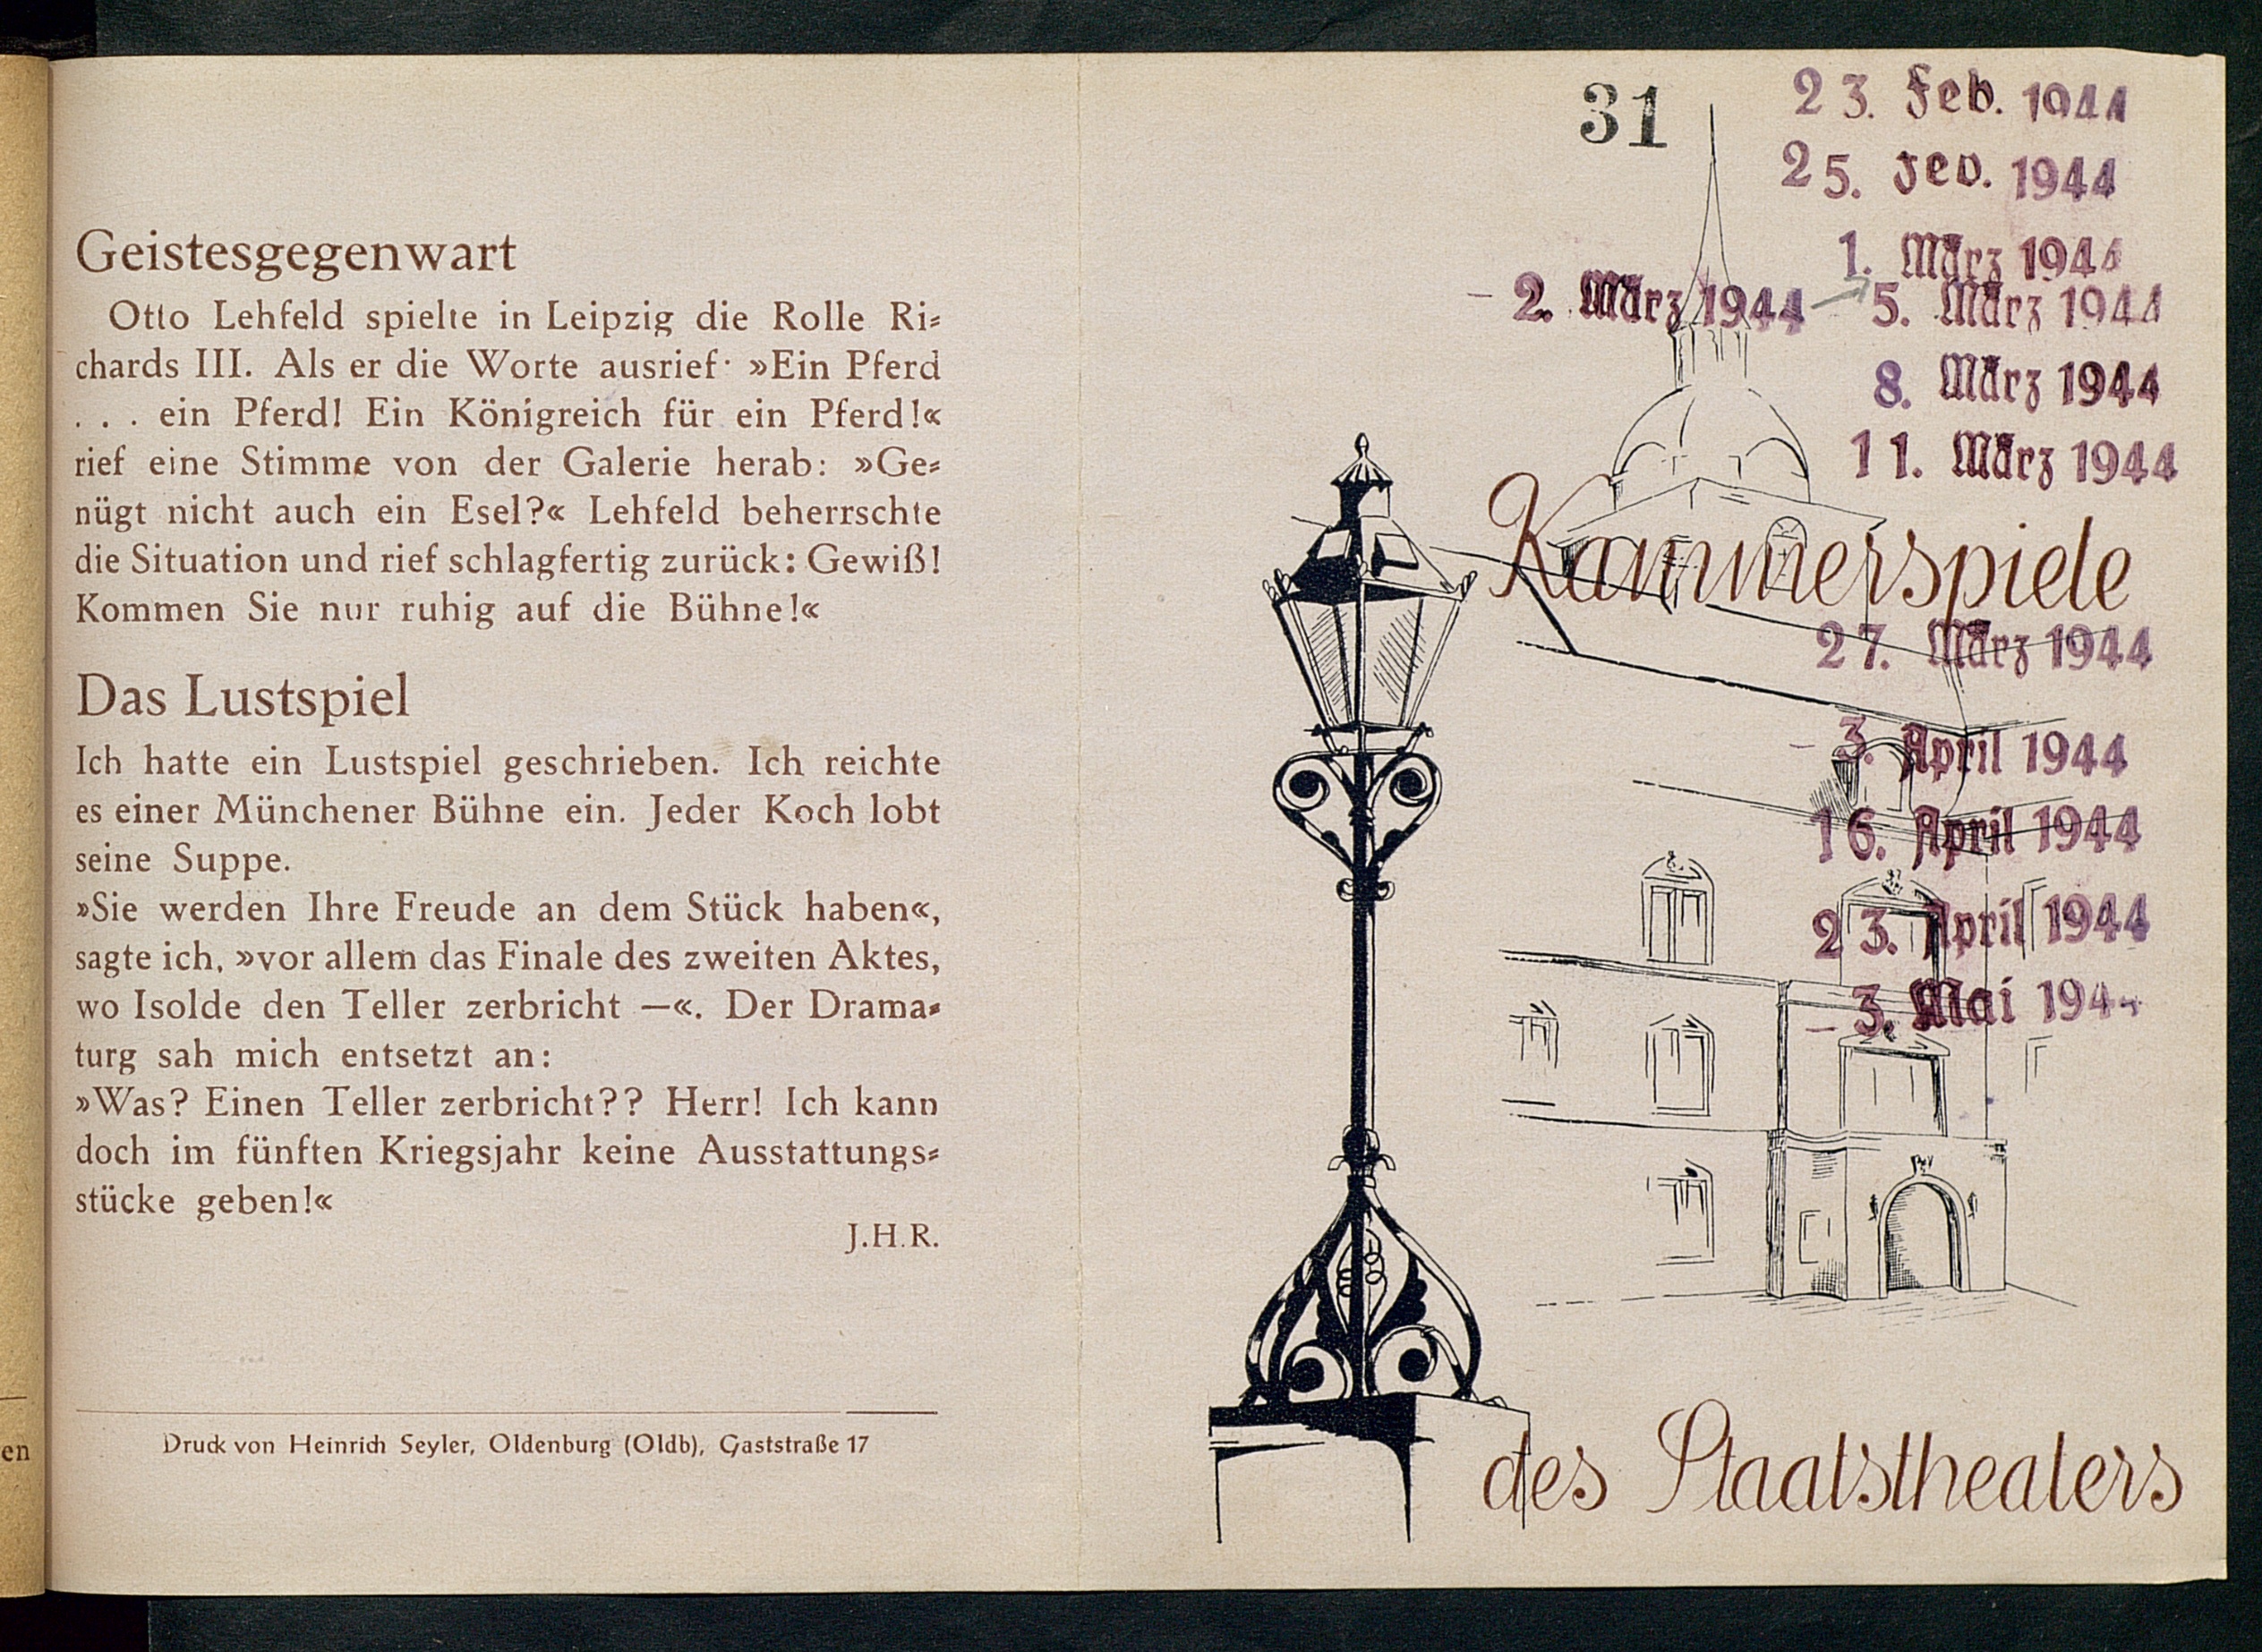 Geistesgegenwart
Otto Lehfeld spielte in Leipzig die Rolle Ri-
chards III. Als er die Worte ausrief· »Ein Pferd
. . . ein Pferd! Ein Königreich für ein Pferd!«
rief eine Stimme von der Galerie herab: »Ge-
nügt nicht auch ein Esel?« Lehfeld beherrschte
die Situation und rief schlagfertig zurück: Gewiß!
Kommen Sie nur ruhig auf die Bühne!«
Das Lustspiel
Ich hatte ein Lustspiel geschrieben. Ich reichte
es einer Münchener Bühne ein. Jeder Koch lobt
seine Suppe.
»Sie werden Ihre Freude an dem Stück haben«,
sagte ich, »vor allem das Finale des zweiten Aktes,
wo Isolde den Teller zerbricht —«. Der Drama-
turg sah mich entsetzt an:
»Was? Einen Teller zerbricht?? Herr! Ich kann
doch im fünften Kriegsjahr keine Ausstattungs-
stücke geben!«
J.H.R.
Druck von Heinrich Seyler, Oldenburg (Oldb), Gaststraße 17
en
31
23. Feb. 1944
25. Feb. 1944
1. März 1944
- 2. März 1944
5. März 1944
8. März 1944
11. März 1944
Kammerspiele
27. März 1944
- 3. April 1944
16. April 1944
23. April 1944
- 3. Mai 1944
des Staatstheaters